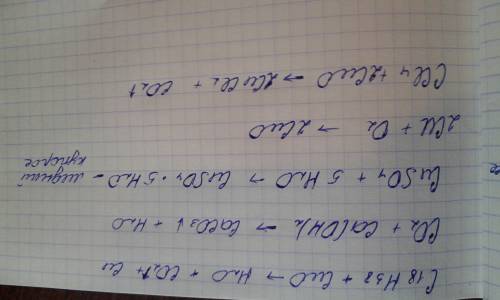 C₁₈H₃₈ + CuO → H₂O + CO₂↑ + Cu
CO₂ + Ca(OH)₂ → CaCO₃↓ + H₂O
CuSO₄ + 5 H₂O → CuSO₄ · 5H₂O - медный
купорос
2Cu + O₂ → 2CuO
CCl₄ + 2CuO → 2CuCl₂ + CO₂↑